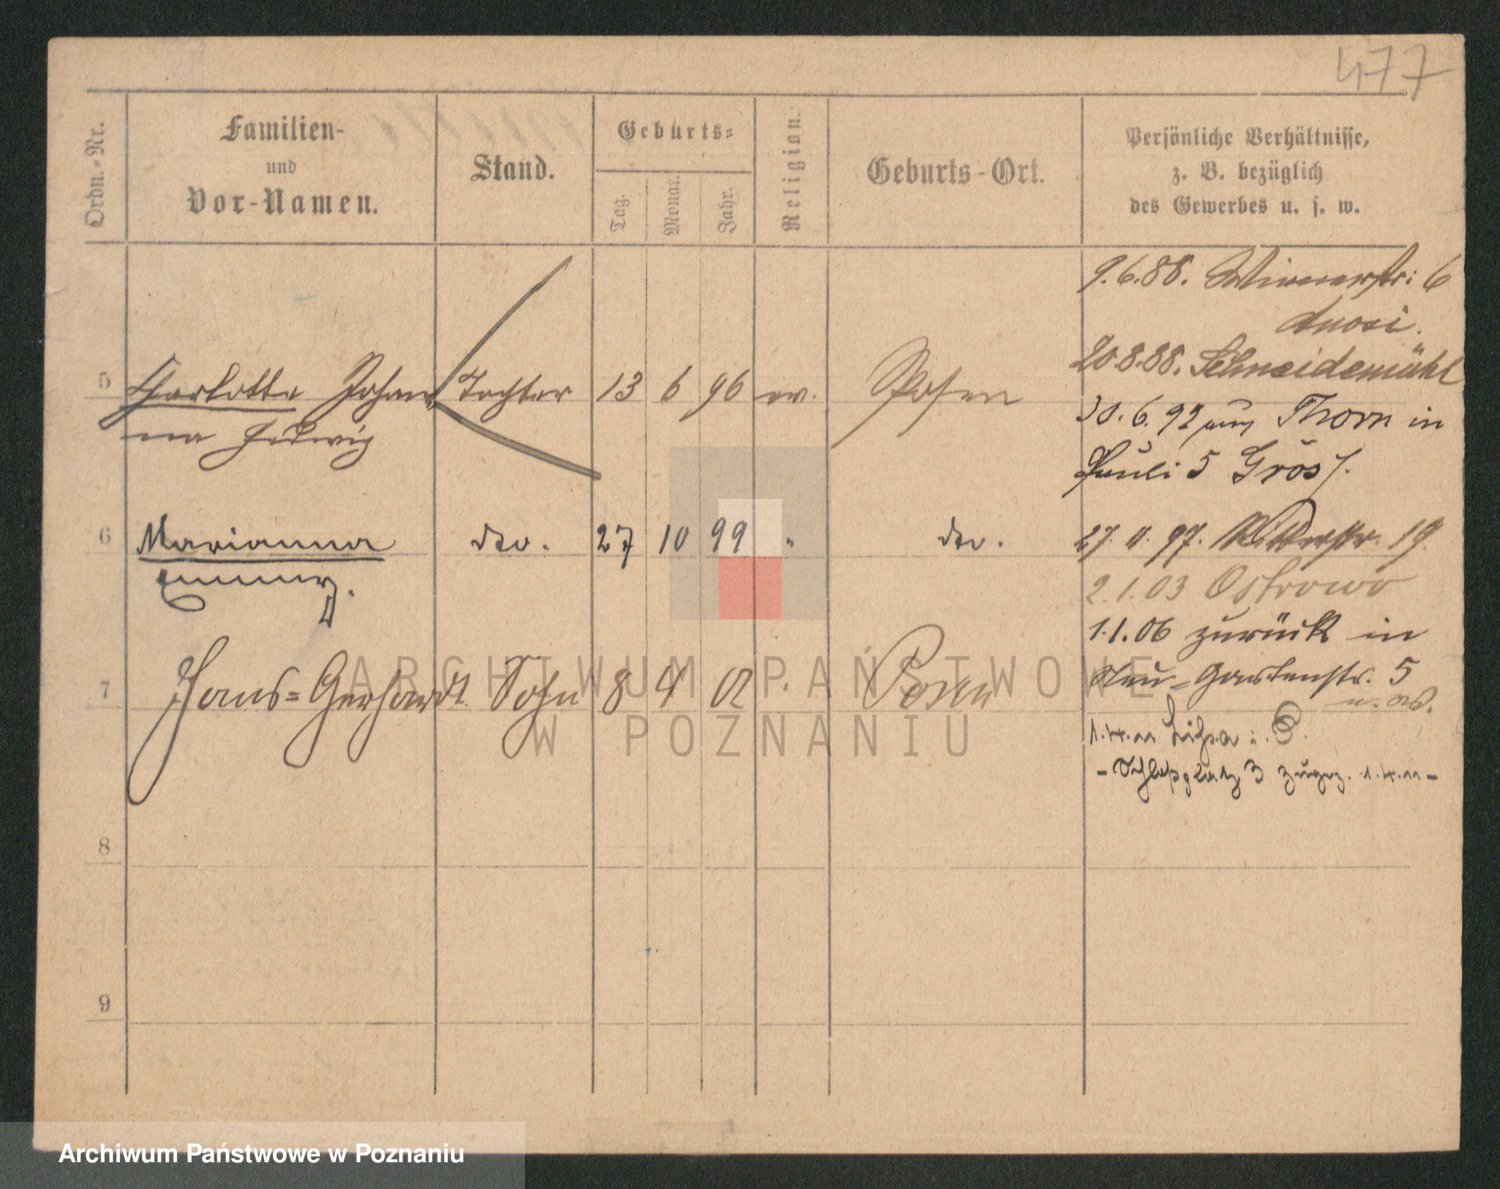 477
Ordn.-Nr.
Familien-
und
Vor-Namen.
Stand.
Geburts-
Tag.
Monat.
Jahr.
Religion.
Geburts-Ort.
Persönliche Verhältnisse,
z. B. bezüglich
des Gewerbes u. s. w.
9.6.88. 6
20.8.88. Schneidemühl
5 Charlotte Johan Tochter 13 6 96 ev. Posen
na Hedwig
30.6.92 Thorn in
5
6 Marianna dto. 27 10 99 " dto.
27. 11. 97. 19.
2.1.03 Ostrowo
1.1.06 zurück in
7 Hans-Gerhardt Sohn 8 4 02 Posen
Neu-Gartenstr. 5
1.4.11 Lissa i. P.
- Schloßplatz 3 zugez. 1.4.11 -
8
9
ARCHIWUM PAŃSTWOWE
W POZNANIU
Archiwum Państwowe w Poznaniu